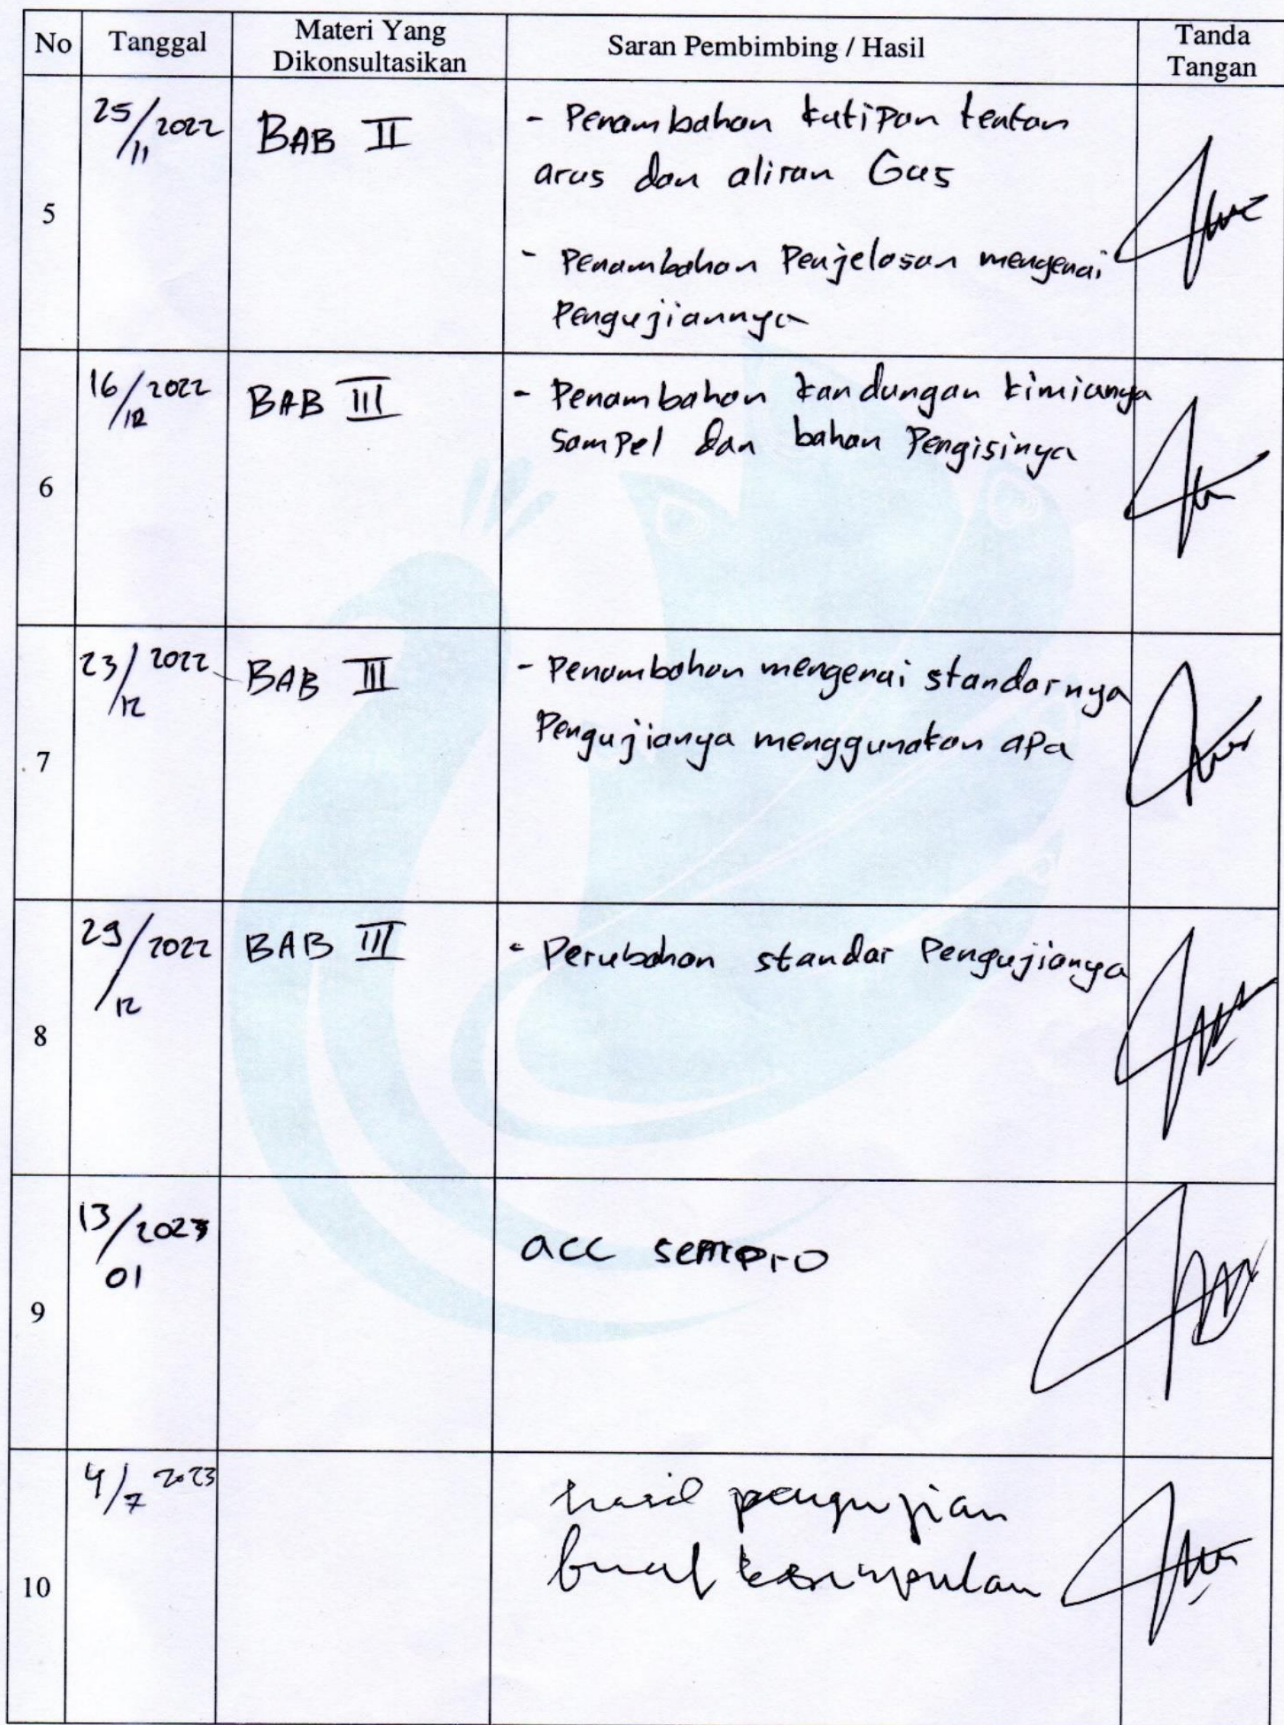 No Tanggal Materi Yang Dikonsultasikan Saran Pembimbing / Hasil Tanda Tangan
5 25/11 2022 BAB II - Penambahan kutipan tentan
arus dan aliran Gas
- Penambahan Penjelasan mengenai
Pengujiannya
6 16/12 2022 BAB III - Penambahan kandungan kimianya
sampel dan bahan Pengisinya
7 23/12 2022 BAB III - Penambahan mengenai standarnya
Pengujianya menggunakan apa
8 29/12 2022 BAB III - Perubahan standar Pengujianya
9 13/01 2023 acc sempro
10 4/7 2023 hasil pengujian
buat kesimpulan